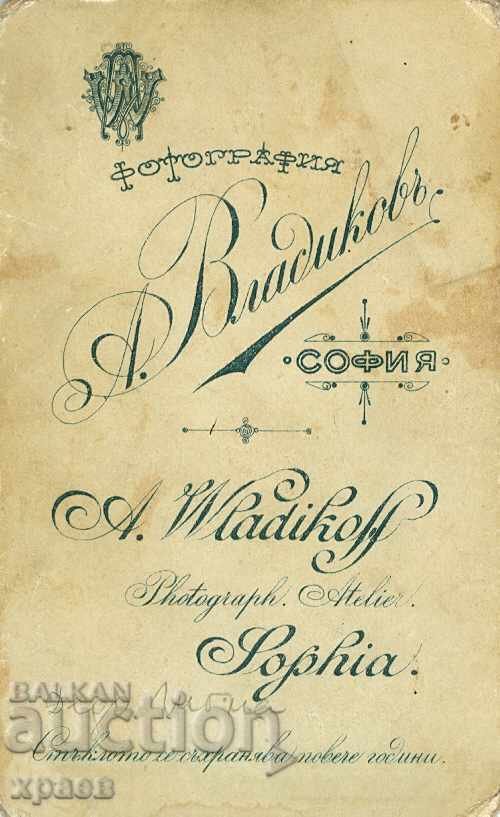 ФОТОГРАФИЯ
А. Владиковъ
СОФИЯ
A. Wladikoff
Photograph. Atelier.
Sophia.
BALKAN
auction
Стъклото се съхранява повече години.
храев